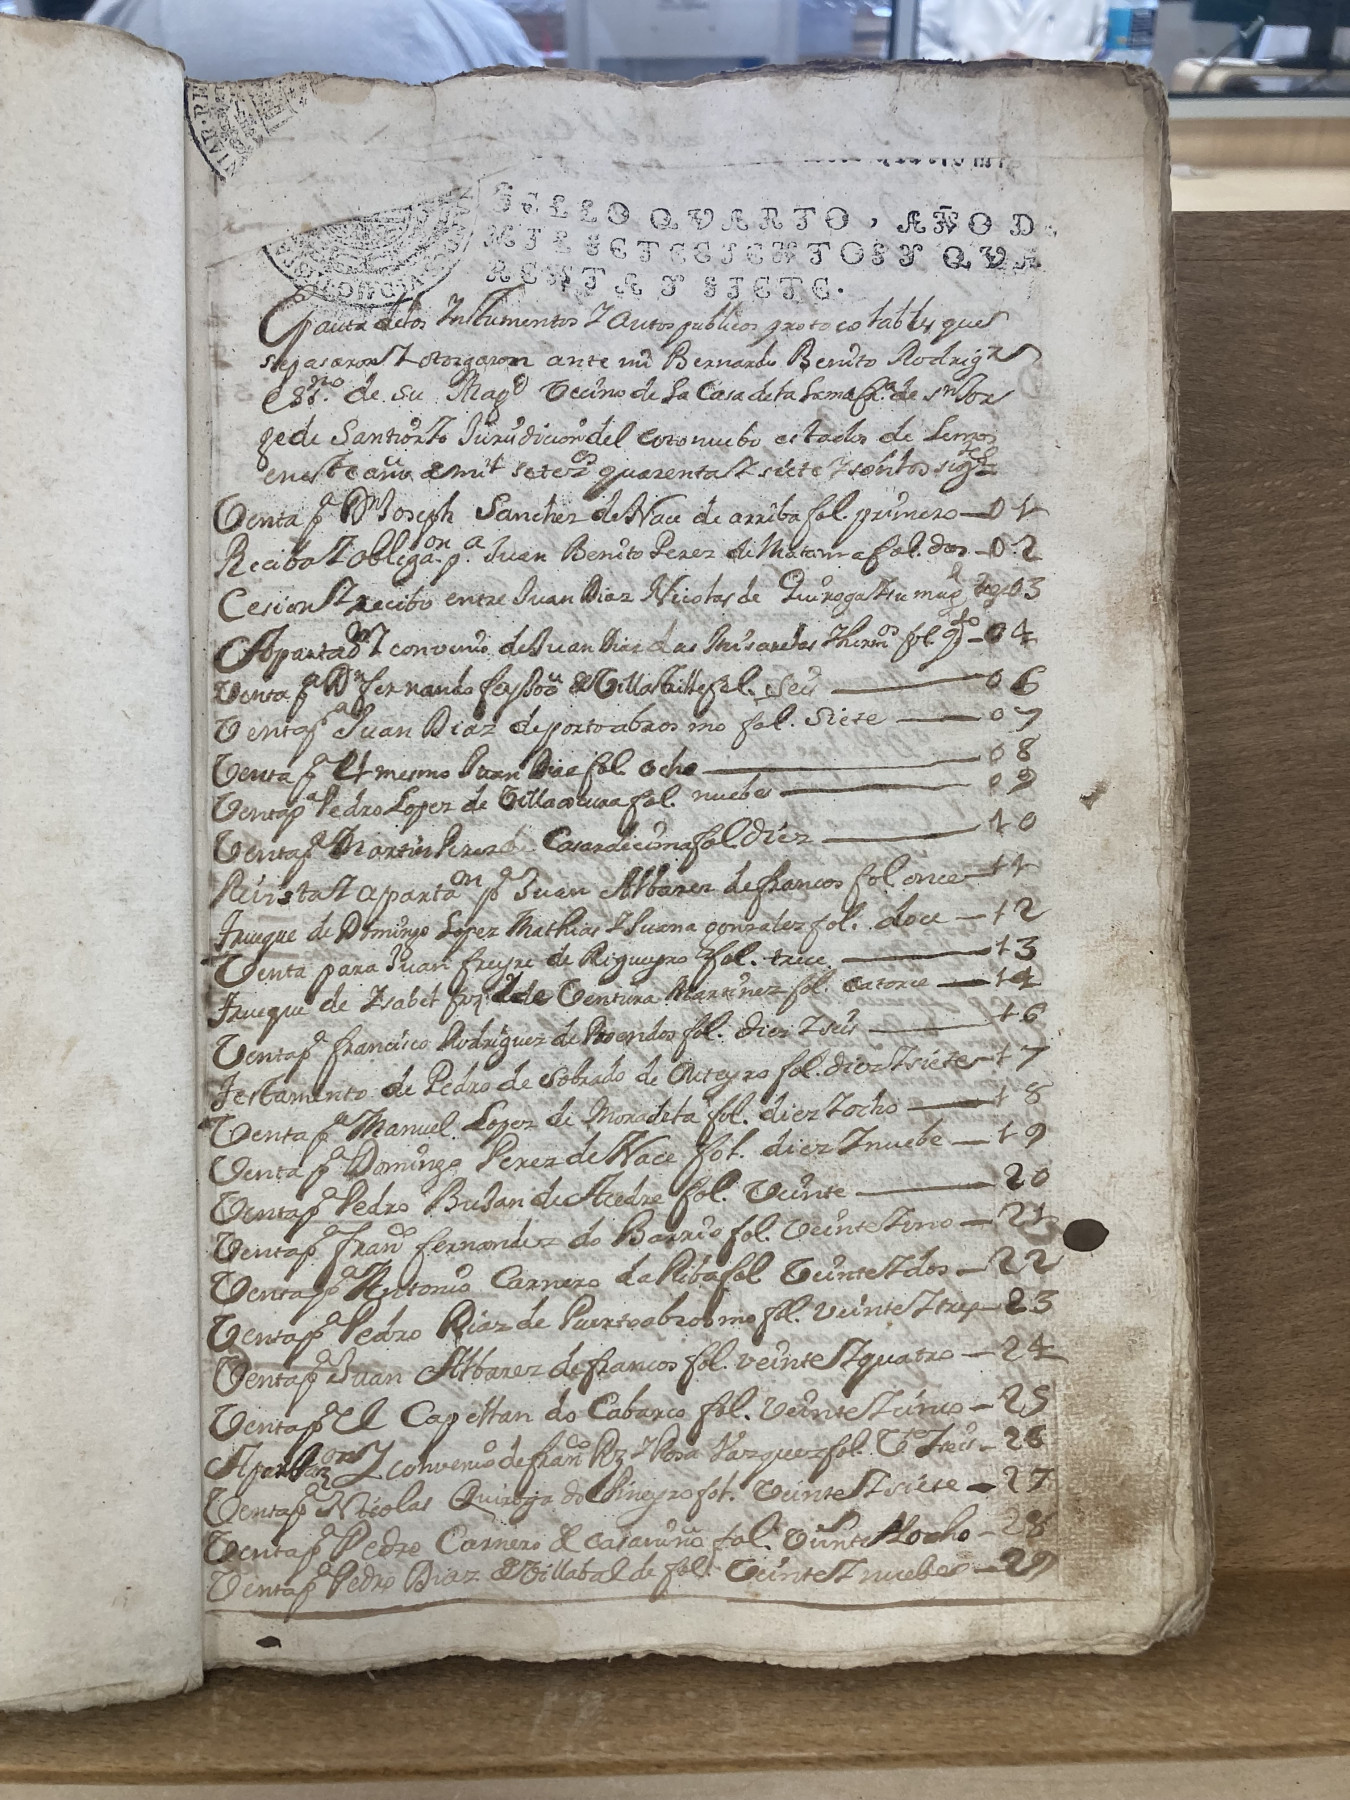 SELLO QVARTO, AÑO D
MIL SETECIENTOS Y QVA
RENTA Y SIETE.
Pauta delos Instumentos Y autos publicos protocolables ques
sepasaron Y otorgaron ante mi Bernardo Benito Rodrigz
essno. de su Magd Vecino de La Casa de de sn Jor
ge de Santiorxo Jurisdicion del cotonuebo estados de Lemos
eneste año de mil setezos quarenta Y siete Y son los sigtes
Venta pa Dn Joseph Sanchez de Nace de arriba fol. primero 01
Recibo Y obligaon pa Juan Benito Perez de Matama fol. dos 02
Cesion Y recibo entre Juan Diaz Nicolas de Quiroga Y su mugr 03
Apartaon Y convenio de Juan Diaz das Y hermos fol. qto 04
Venta pa Dn fernando feyJoo de Villasaille fol. seis 06
Venta pa Juan Diaz de portoabrosmo fol. siete 07
Venta pa el mesmo Juan Diaz fol. ocho 08
Venta pa Pedro Lopez de fol. nuebe 09
Venta pa Martin Perez de Casardecima fol. diez 10
Revista Y apartaon pa Juan Albarez de francos fol. once 11
trueque de Domingo Lopez Mathias Y Juana gonzalez fol. doce 12
Venta para Juan freyre de Rigueyro fol. trece 13
trueque de Ysabel frz Y de Ventura Martinez fol. catorce 14
Venta pa francisco Rodriguez de Roendos fol. diez Y seis 16
testamento de Pedro de sobrado de Outeyro fol. diez Y siete 17
Venta pa Manuel Lopez de Moradela fol. diez Y ocho 18
Venta pa Domingo Perez de Nace fol. diez Y nuebe 19
Venta pa Pedro BuJan de Acedre fol. Veinte 20
Venta pa Frano fernandez do Barrio fol. Veinte Y uno 21
Venta pa Antonio Carnero da Riba fol. Veinte Y dos 22
Venta pa Pedro Diaz de Puertoabrosmo fol. veinte Y tres 23
Venta pa Juan Albarez de francos fol. veinte Y quatro 24
Venta pa el Capellan do Cabarco fol. Veinte Y cinco 25
Apartazon Y convenio de frano Rz Y Rosa Vazquez fol. Ve Y seis 26
Venta pa Nicolas Quiroga do Pineyro fol. Veinte Y siete 27
Venta pa Pedro Carnero de casaniña fol. Veinte Y ocho 28
Venta pa Pedro Diaz de Villabalde fol. Veinte Y nuebe 29